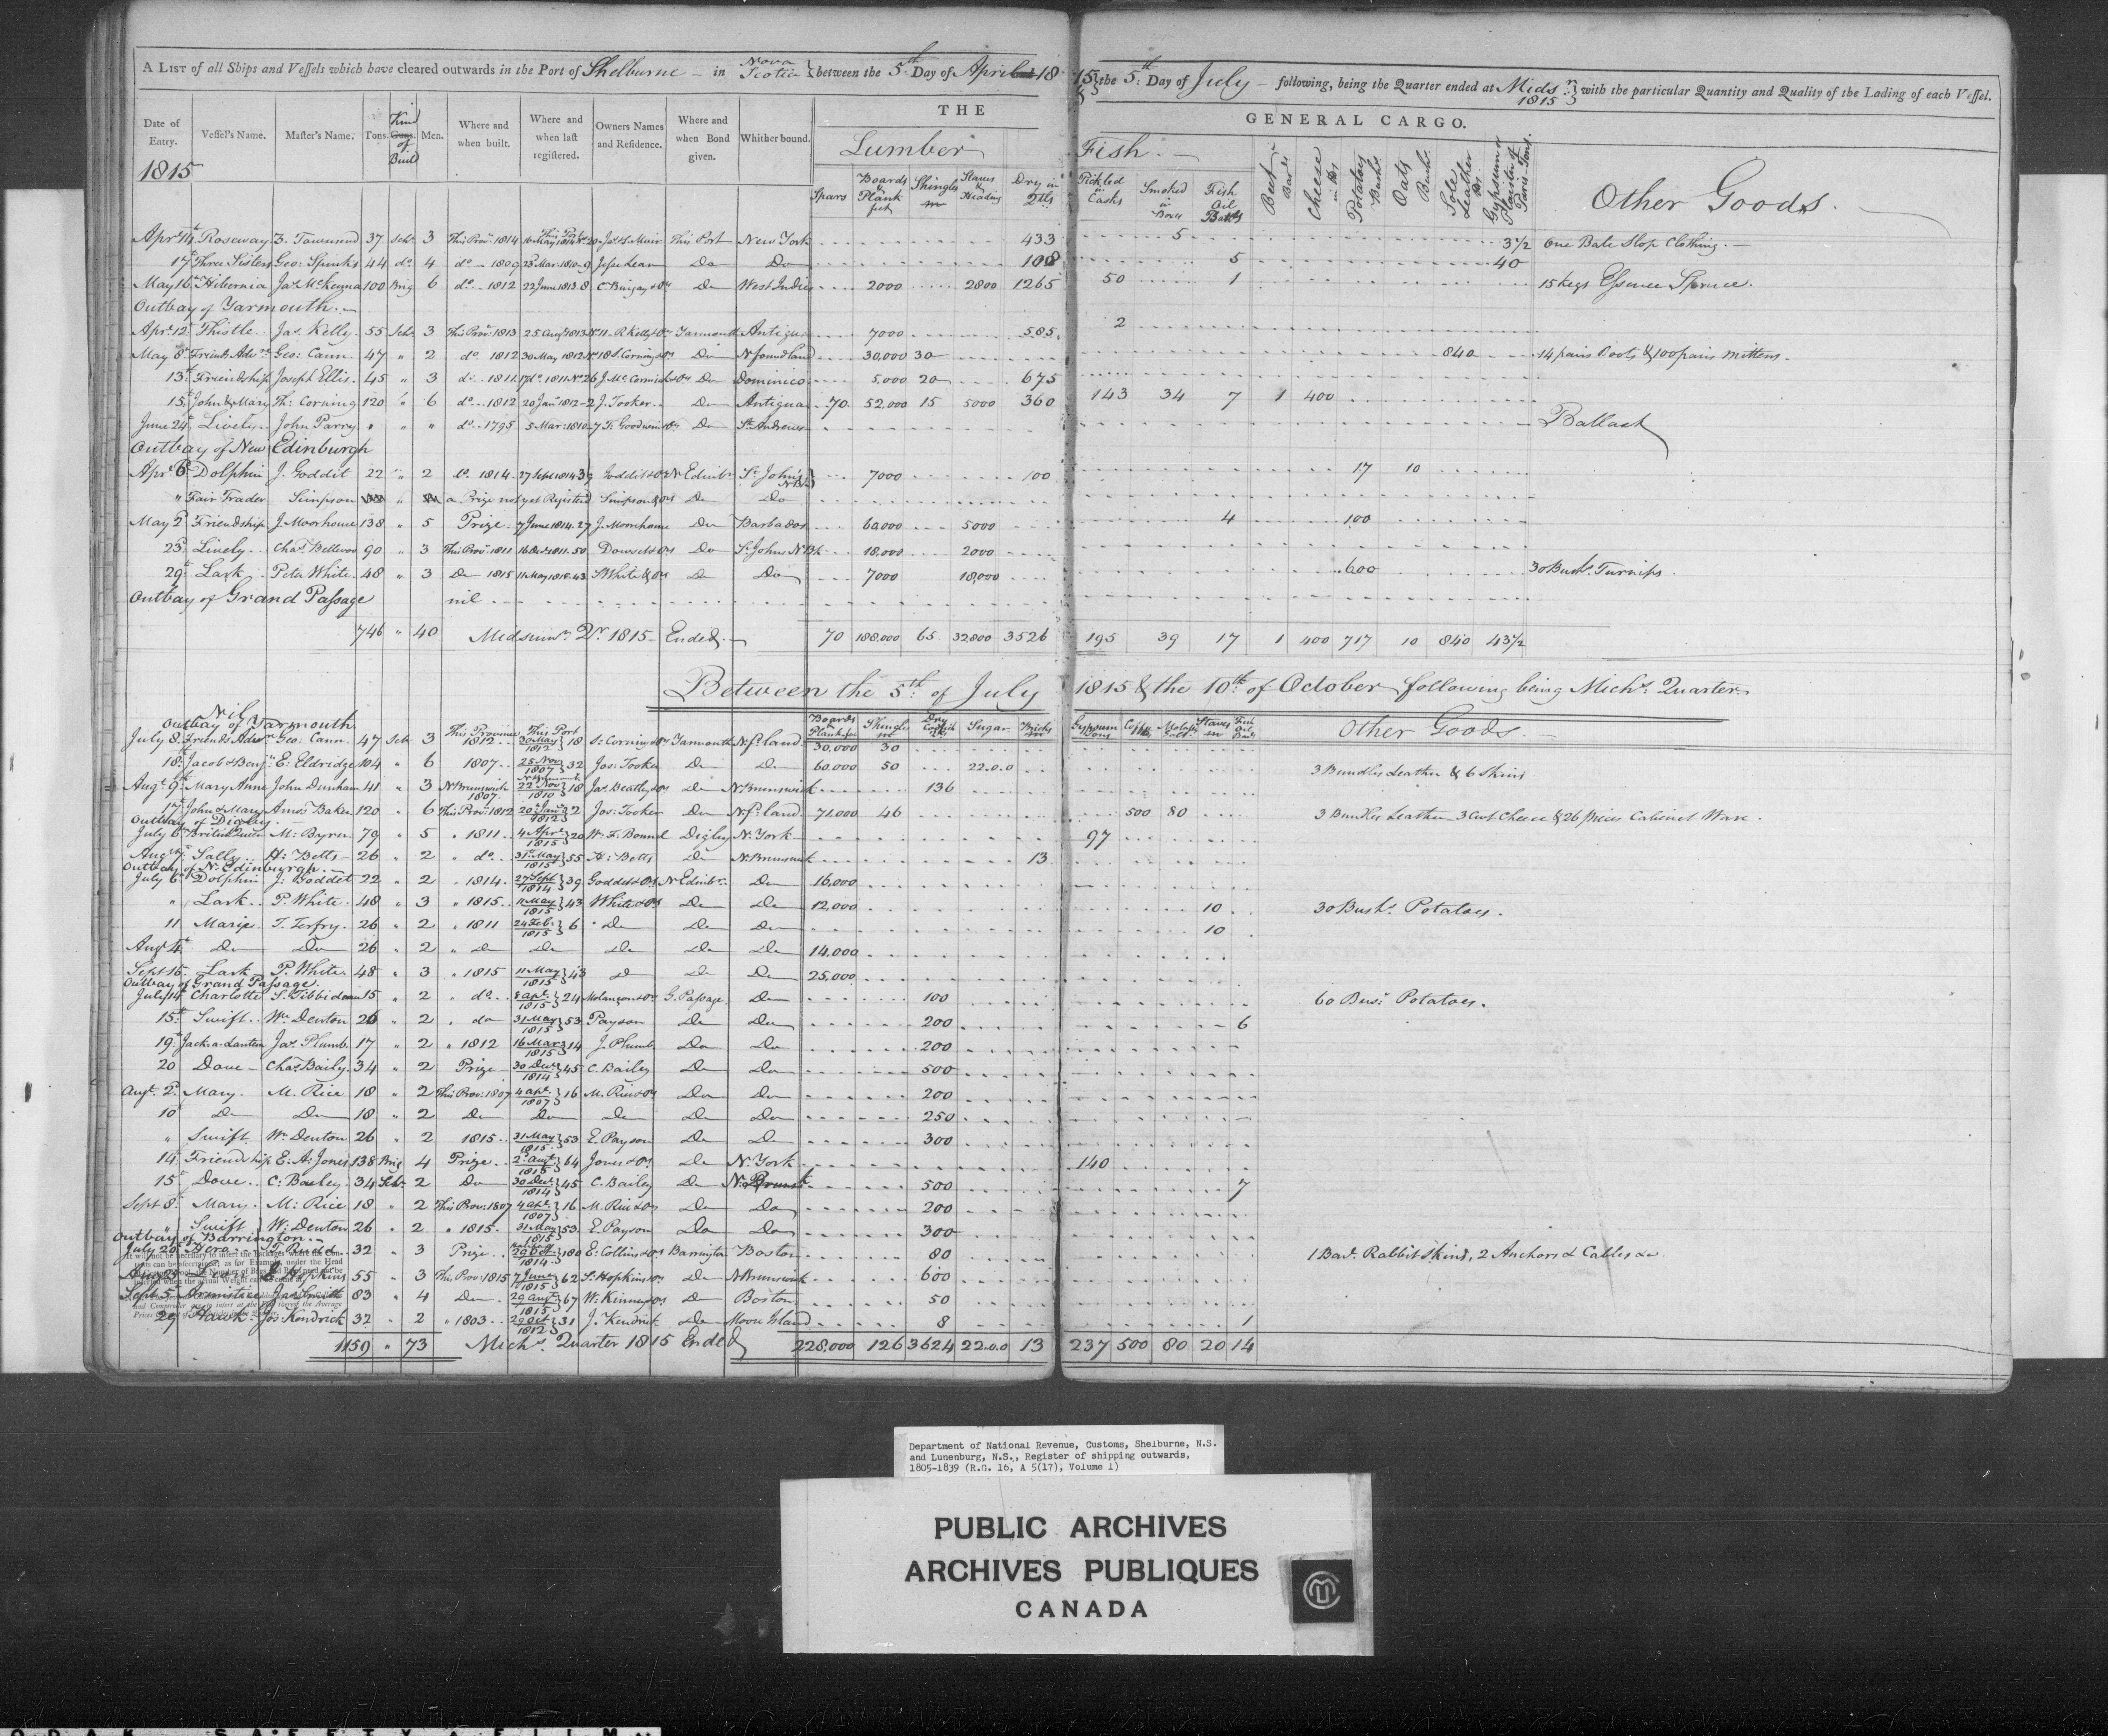 A LIST of all Ships and Vessels which have cleared outwards in the Port of Shelburne – in Nova Scotia } between the 5th Day of April 1815 } & the 5th Day of July – following, being the Quarter ended at Mids r 1815 } with the particular Quantity and Quality of the Lading of each Vessel.
THE GENERAL CARGO.
Date of Entry. Vessel's Name. Master's Name. Tons. Kind of Build Men. Where and when built. Where and when last registered. Owners Names and Residence. Where and when Bond given. Whither bound. Lumber Fish. –
1815 Spars Boards & Plank feet Shingles m Staves & Heading Dry in Qtls Pickled in Casks Smoked in Boxes Fish Oil Barrels Cheese Potatoes Bush. Oats Bush. Sole Leather Gypsum or Plaister of Paris-Tons. Other Goods.
Apr. 14 Roseway Z. Townsend 37 Schr 3 This Prov. 1814 This Port 20 Js. Muir This Port New York 433 5 3½ One Bale Slop Clothing. –
17 Three Sisters Geo: Spinks 44 do 4 do – 1809 23 Mar. 1810-9 Do Do 108 5 40
May 16 Hibernia Jas McKenna 100 Brig 6 do – 1812 22 June 1813.8 Do West Indies 2000 2800 1265 50 1 15 kegs Essence Spruce.
Outbay of Yarmouth. –
Apr. 12 Thistle. Jas. Kelly. 55 Schr. 3 This Prov. 1813 25 Augt 1813 No 11 R. Kelly & ors Yarmouth Antigua 7000 585 2
May 8 Friends Advre Geo: Cann. 47 " 2 do 1812 30 May 1812 No 18 S. Corning & ors Do N foundland 30,000 30 840 14 pairs Boots & 100 pairs mittens.
13 Friendship Joseph Ellis. 45 " 3 do 1811 17 do. 1811 No 26 J. McCormick & ors Do Dominico 5.000 20 675
15. John & Mary Th: Corning 120 " 6 do – 1812 20 Jany 1812-2 J. Tooker. Do Antigua 70. 52,000 15 5000 360 143 34 7 1 400
June 24. Lively John Parry " " " do – 1795 5 Mar. 1810-7 T. Goodwin & ors Do St Andrews Ballast
Outbay of New Edinburgh
Apr. 6 Dolphin J. Goddit 22 " 2 do. 1814. 27 Sept 1814 39 Goddit & ors N Edinbr St John's N.B. 7000 100 17 10
" Fair Trader Simpson " a Prize not yet Registered Simpson & ors Do Do
May 2 Friendship J. Moorhouse 138 " 5 Prize 7 June 1814.27 J. Moorhouse Do Barbados 60,000 5000 4 100
23. Lively. Chas. 90 " 3 This Prov. 1811 16 Oct. 1811.50 Dowset & ors Do St Johns N.B. 18,000 2000
29 Lark. Peter White 48 " 3 Do 1815 11 May 1815.43 White & ors Do Do 7000 18,000 600 30 Bush. Turnips.
Outbay of Grand Passage nil
746 " 40 Midsumr Qr 1815 – Ended. – 70 188.000 65 32,800 3526 195 39 17 1 400 717 10 840 43½
Between the 5th of July 1815 & the 10th of October following being Mich's Quarter
Boards & Plank feet Shingles m Dry Codfish Sugar Bricks m Gypsum Tons Molasses Staves m Fish Oil Other Goods –
Nil
Outbay of Yarmouth
July 8 Friends Advre Geo. Cann 47 Schr 3 This Province 1812 This Port 30 May 1812 } 18 S: Corning & ors Yarmouth N.f.land 30,000 30
18 Jacob & Benjn E: Eldridge 104 " 6 1807 25 Nov 1807 } 32 Jos: Tooker Do Do 60,000 50 22.0.0 3 Bundles Leather & 6 Skins
Augt 9 Mary Anne John Dunham 41 " 3 N Brunswick 1807 22 Nov 1810 } 18 Jas Beatty & ors Do N Brunswick 136
17 John & Mary Amos Baker 120 " 6 This Prov. 1812 20 Jany 1812 } 2 Jos: Tooker Do N.f.land 71,000 46 500 80 3 Bundles Leather – 3 Cwt Cheese & 26 pieces Cabinet Ware.
Outbay of Digby.
July 6 British Queen M: Byren 79 " 5 " 1811 4 Apl 1815 } 20 W. F. Bonnel Digby N. York 97
Augt 7 Sally H: Betts 26 " 2 " do 31 May 1815 } 55 H: Betts Do N. Brunswick 13
Outbay of N. Edinburgh. –
July 6 Dolphin J: Goddet 22 " 2 " 1814 27 Sept 1814 } 39 Goddet & ors N Edinbr Do 16,000
" Lark P. White 48 " 3 " 1815 11 May 1815 } 43 White & ors Do Do 12,000 10 30 Bush. Potatoes.
11 Marie T. Terfry. 26 " 2 " 1811 24 Feb. 1815 } 6 Do Do Do 10
Augt 4 Do Do 26 " 2 " Do Do Do Do Do 14,000
Sept 16 Lark P. White. 48 " 3 " 1815 11 May 1815 } 43 Do Do Do 25,000
Outbay of Grand Passage.
July 14 Charlotte S. Tibbideau 15 " 2 " do 8 apl. 1815 } 24 Melançon & ors G. Passage Do 100 60 Bus. Potatoes.
15 Swift Wm Denton 26 " 2 " do 31 May 1815 } 53 Payson Do Do 200 6
19 Jack a Lantern Jas Plumb. 17 " 2 " 1812 16 Mar 1815 } 14 J. Plumb Do Do 200
20 Dove – Chas Baily 34 " 2 Prize 30 Decr 1814 } 45 C. Bailey Do Do 500
Augt. 2 Mary. M. Rice 18 " 2 This Prov: 1807 4 apl. 1807 } 16 M. Rice & ors Do Do 200
10 Do Do 18 " 2 Do Do Do Do Do 250
" Swift Wm Denton 26 " 2 1815 31 May 1815 } 53 E. Payson Do Do 300
14 Friendship E. A: Jones 138 Brig 4 Prize 2 Augt 1815 } 64 Jones & ors Do N. York 140
15 Dove C: Bailey 34 Schr 2 Do 30 Decr 1814 } 45 C. Bailey Do N. Brunsk 500 7
Sept 8 Mary. M: Rice 18 " 2 This Prov: 1807 4 apl. 1807 } 16 M. Rice & ors Do Do 200
" Swift W: Denton 26 " 2 " 1815 31 May 1815 } 53 E. Payson Do Do 300
Outbay of Barrington. –
July 20 Hero T. Rudd 32 " 3 Prize Halifax 29 Oct 1814 } 180 E: Collins & ors Barrington Boston 80 1 Bar. Rabbit Skins, 2 Anchors & Cables &c.
Augt 25 Leo Hopkins 55 " 3 This Prov: 1815 7 June 1815 } 62 S: Hopkins & ors Do N Brunswick 600
Sept 5 Armistice Jas Smith 83 " 4 Do 29 Augt 1815 } 67 W: Kinney & ors Do Boston 50
29 Hawk Jos: Kendrick 32 " 2 " 1803 29 Oct 1812 } 31 J. Kendrick Do Moose Island 8 1
1159 " 73 Mich's. Quarter 1815 Ended 228,000 126 3624 22.0.0 13 237 500 80 20 14
Department of National Revenue, Customs, Shelburne, N.S.
and Lunenburg, N.S., Register of shipping outwards,
1805-1839 (R.G. 16, A 5(17), Volume 1)
PUBLIC ARCHIVES
ARCHIVES PUBLIQUES
CANADA